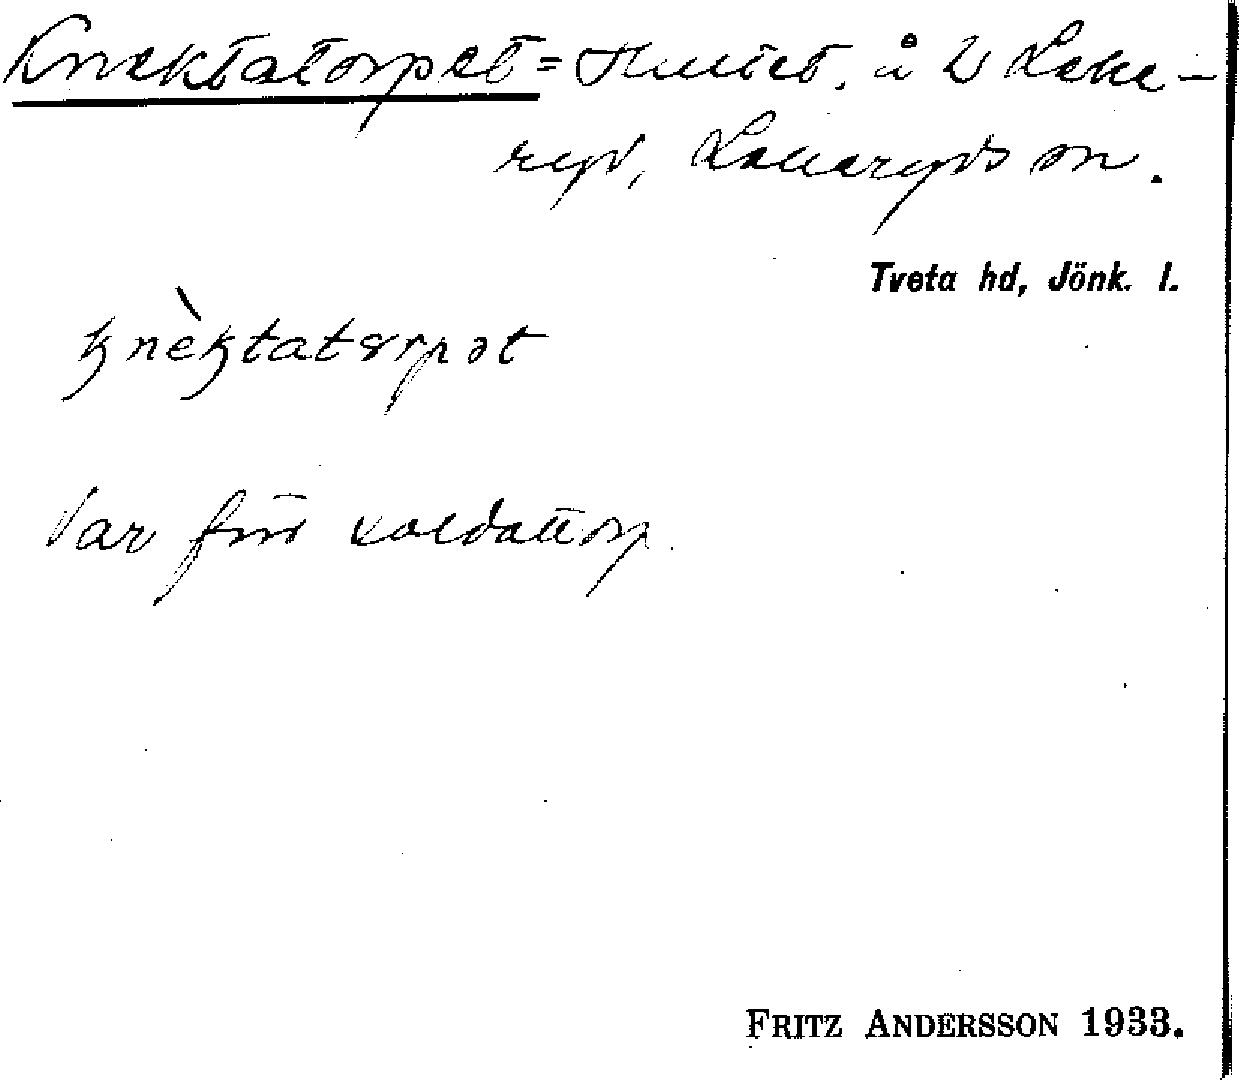 Knektatorpet = Hultet, å V Leke-
ryd, Lekeryds sn.
Tveta hd, Jönk. l.
knèktatɤrpət
Var förr soldattorp.
FRITZ ANDERSSON 1933.